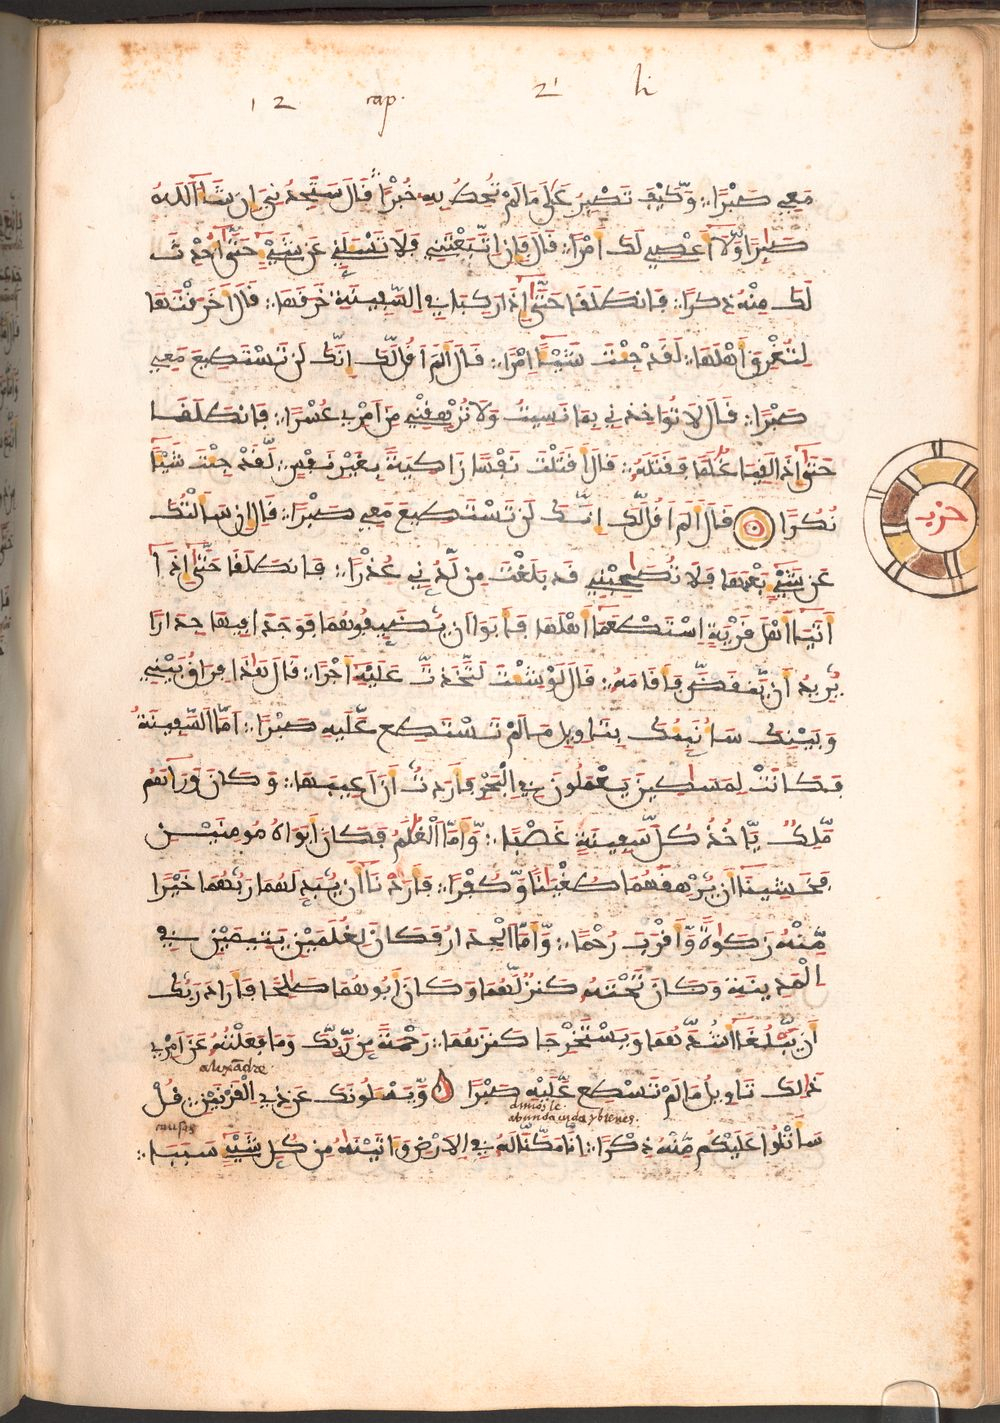 12 cap. 2 li
مَعِي صَبْرًا ؞ وَّكَيْفَ تَصْبِرُ عَلَى مَا لَمْ تُحِطْ بِهِ خُبْرًا ؞ قَالَ سَتَجِدُنِيَ إِن شَاءَ اللَّهُ
صَابِرًا وَّلَا أَعْصِي لَكَ أَمْرًا ؞ قَالَ فَإِنِ اتَّبَعْتَنِي فَلَا تَسْـَٔلَنِّي عَن شَيْءٍ حَتَّى أُحْدِثَ
لَكَ مِنْهُ ذِكْرًا ؞ فَانطَلَقَا حَتَّى إِذَا رَكِبَا فِي السَّفِينَةِ خَرَقَهَا ؞ قَالَ أَخَرَقْتَهَا
لِتُغْرِقَ أَهْلَهَا ؞ لَقَدْ جِئْتَ شَيْئًا إِمْرًا ؞ قَالَ أَلَمْ أَقُل لَّكَ إِنَّكَ لَن تَسْتَطِيعَ مَعِي
صَبْرًا ؞ قَالَ لَا تُؤَاخِذْنِي بِمَا نَسِيتُ وَلَا تُرْهِقْنِي مِنْ أَمْرِي عُسْرًا ؞ فَانطَلَقَا
حَتَّى إِذَا لَقِيَا غُلَٰمًا فَقَتَلَهُ ؞ قَالَ أَقَتَلْتَ نَفْسًا زَاكِيَةً بِغَيْرِ نَفْسٍ ؞ لَّقَدْ جِئْتَ شَيْئًا
نُّكُرًا قَالَ أَلَمْ أَقُل لَّكَ إِنَّكَ لَن تَسْتَطِيعَ مَعِي صَبْرًا ؞ قَالَ إِن سَأَلْتُكَ
حزب
عَن شَيْءٍ بَعْدَهَا فَلَا تُصَٰحِبْنِي قَدْ بَلَغْتَ مِن لَّدُنِي عُذْرًا ؞ فَانطَلَقَا حَتَّى إِذَا
أَتَيَا أَهْلَ قَرْيَةٍ اسْتَطْعَمَا أَهْلَهَا فَأَبَوْا أَن يُضَيِّفُوهُمَا فَوَجَدَا فِيهَا جِدَارًا
يُرِيدُ أَن يَّنقَضَّ فَأَقَامَهُ ؞ قَالَ لَوْ شِئْتَ لَتَّخَذتَّ عَلَيْهِ أَجْرًا ؞ قَالَ هَٰذَا فِرَاقُ بَيْنِي
وَبَيْنِكَ سَأُنَبِّئُكَ بِتَأْوِيلِ مَا لَمْ تَسْتَطِع عَّلَيْهِ صَبْرًا ؞ أَمَّا السَّفِينَةُ
فَكَانَتْ لِمَسَٰكِينَ يَعْمَلُونَ فِي الْبَحْرِ فَأَرَدتُّ أَنْ أَعِيبَهَا ؞ وَكَانَ وَرَاءَهُم
مَّلِكٌ يَّأْخُذُ كُلَّ سَفِينَةٍ غَصْبًا ؞ وَّأَمَّا الْغُلَٰمُ فَكَانَ أَبَوَاهُ مُومِنَيْنِ
فَخَشِينَا أَن يُّرْهِقَهُمَا طُغْيَٰنًا وَّكُفْرًا ؞ فَأَرَدْنَا أَن يُّبَدِّلَهُمَا رَبُّهُمَا خَيْرًا
مِّنْهُ زَكَوٰةً وَّأَقْرَبَ رُحْمًا ؞ وَّأَمَّا الْجِدَارُ فَكَانَ لِغُلَٰمَيْنِ يَتِيمَيْنِ فِي
الْمَدِينَةِ وَكَانَ تَحْتَهُ كَنزٌ لَّهُمَا وَكَانَ أَبُوهُمَا صَٰلِحًا فَأَرَادَ رَبُّكَ
أَن يَّبْلُغَا أَشُدَّهُمَا وَيَسْتَخْرِجَا كَنزَهُمَا ؞ رَحْمَةً مِّن رَّبِّكَ وَمَا فَعَلْتُهُ عَنْ أَمْرِي
alixãdre
ذَٰلِكَ تَأْوِيلُ مَا لَمْ تَسْطِع عَّلَيْهِ صَبْرًا وَّيَسْـَٔلُونَكَ عَن ذِي الْقَرْنَيْنِ ؞ قُلْ
dimosle
abundã vida y bienes.
causas
سَأَتْلُوا عَلَيْكُم مِّنْهُ ذِكْرًا ؞ إِنَّا مَكَّنَّا لَهُ فِي الْأَرْضِ وَءَاتَيْنَٰهُ مِن كُلِّ شَيْءٍ سَبَبًا ؞